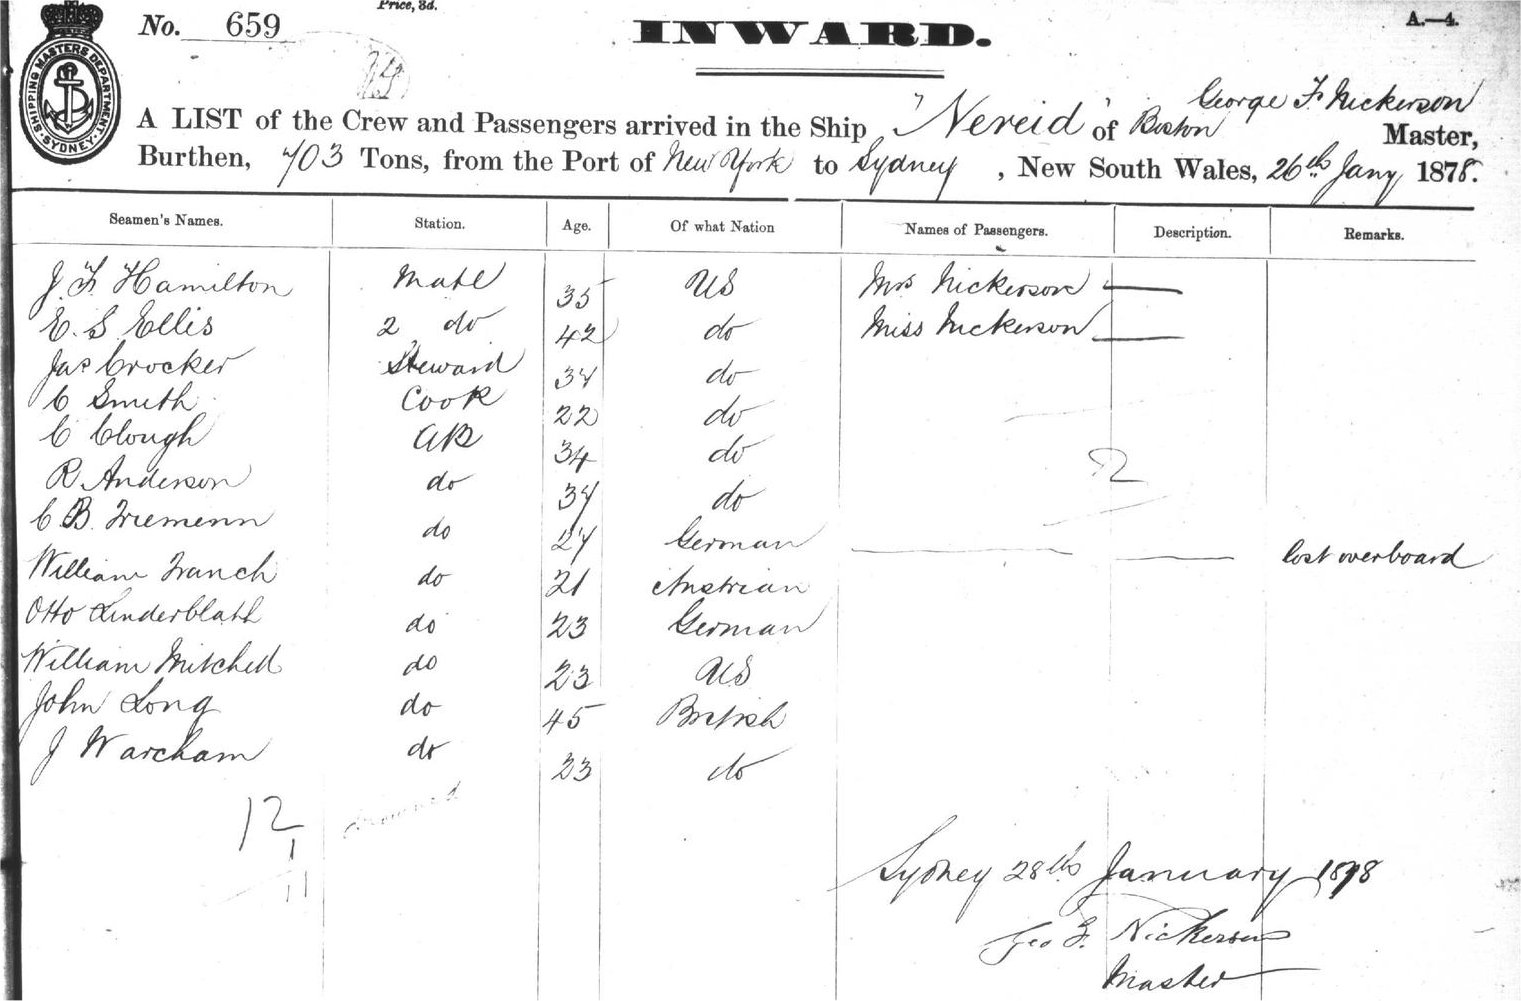 Price, 3d.
No. 659
INWARD.
A.—4.
SHIPPING MASTERS DEPARTMENT
SYDNEY
George F. Nickerson
A LIST of the Crew and Passengers arrived in the Ship "Nereid" of Boston Master,
Burthen, 703 Tons, from the Port of New York to Sydney, New South Wales, 26th Jany 1878.
Seamen's Names. Station. Age. Of what Nation Names of Passengers. Description. Remarks.
J. F. Hamilton Mate 35 US Mrs Nickerson
E. S. Ellis 2 do 42 do Miss Nickerson
Jas Crocker Steward 37 do
C Smith Cook 22 do
C Clough AB 34 do
R Anderson do 37 do
2
C. B. do 27 German lost overboard
William do 21 Austrian
Otto Linderblath do 23 German
William Mitchell do 23 US
John Long do 45 British
J Warcham do 23 do
12
1
11
Sydney 28th January 1878
Geo F. Nickerson
Master